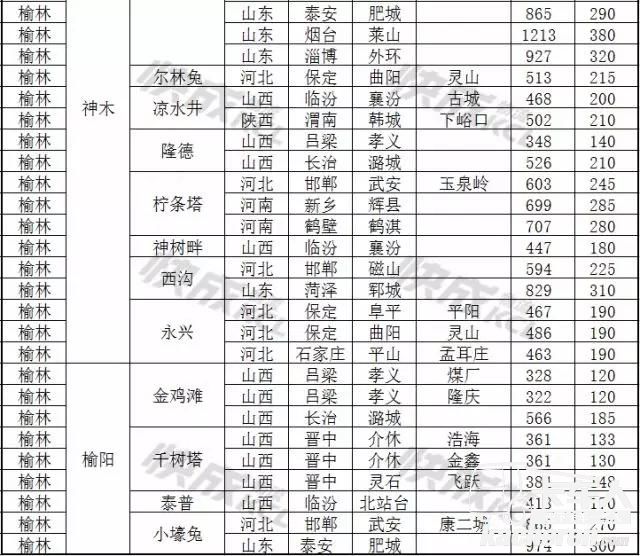 榆林 山东 泰安 肥城 865 290
榆林 山东 烟台 莱山 1213 380
榆林 山东 淄博 外环 927 320
榆林 神木 尔林兔 河北 保定 曲阳 灵山 513 215
榆林 凉水井 山西 临汾 襄汾 古城 468 200
榆林 陕西 渭南 韩城 下峪口 502 210
榆林 隆德 山西 吕梁 孝义 348 140
榆林 山西 长治 潞城 526 210
榆林 柠条塔 河北 邯郸 武安 玉泉岭 603 245
榆林 河南 新乡 辉县 699 285
榆林 河南 鹤壁 鹤淇 707 280
榆林 神树畔 山西 临汾 襄汾 447 180
榆林 西沟 河北 邯郸 磁山 594 225
榆林 山东 菏泽 郓城 829 310
榆林 永兴 河北 保定 阜平 平阳 467 190
榆林 河北 保定 曲阳 灵山 486 190
榆林 河北 石家庄 平山 孟耳庄 463 190
榆林 榆阳 金鸡滩 山西 吕梁 孝义 煤厂 328 120
榆林 山西 吕梁 孝义 隆庆 322 120
榆林 山西 长治 潞城 566 185
榆林 千树塔 山西 晋中 介休 浩海 361 133
榆林 山西 晋中 介休 金鑫 361 130
榆林 山西 晋中 灵石 飞跃 381 148
榆林 泰普 山西 临汾 北站台 413 170
榆林 小壕兔 河北 邯郸 武安 康二城
榆林 山东 泰安 肥城 974 300
快成